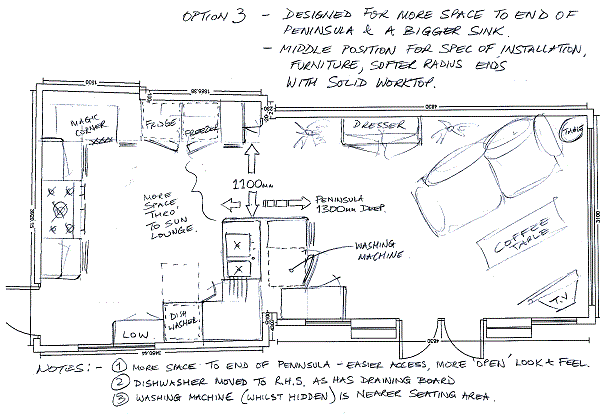 OPTION 3 - DESIGNED FOR MORE SPACE TO END OF
PENINSULA & A BIGGER SINK.
- MIDDLE POSITION FOR SPEC OF INSTALLATION,
FURNITURE, SOFTER RADIUS ENDS
WITH SOLID WORKTOP.
MAGIC
CORNER
FRIDGE
FREEZER
DRESSER
TABLE
1100mm
MORE
SPACE
'THRO'
TO SUN
LOUNGE.
PENINSULA
1300mm DEEP.
WASHING
MACHINE
COFFEE
TABLE
T.V
DISH
WASHER
LOW
4630
4630
NOTES:- 1 MORE SPACE TO END OF PENINSULA - EASIER ACCESS, MORE 'OPEN' LOOK & FEEL.
2 DISHWASHER MOVED TO R.H.S. AS HAS DRAINING BOARD
3 WASHING MACHINE (WHILST HIDDEN) IS NEARER SEATING AREA.